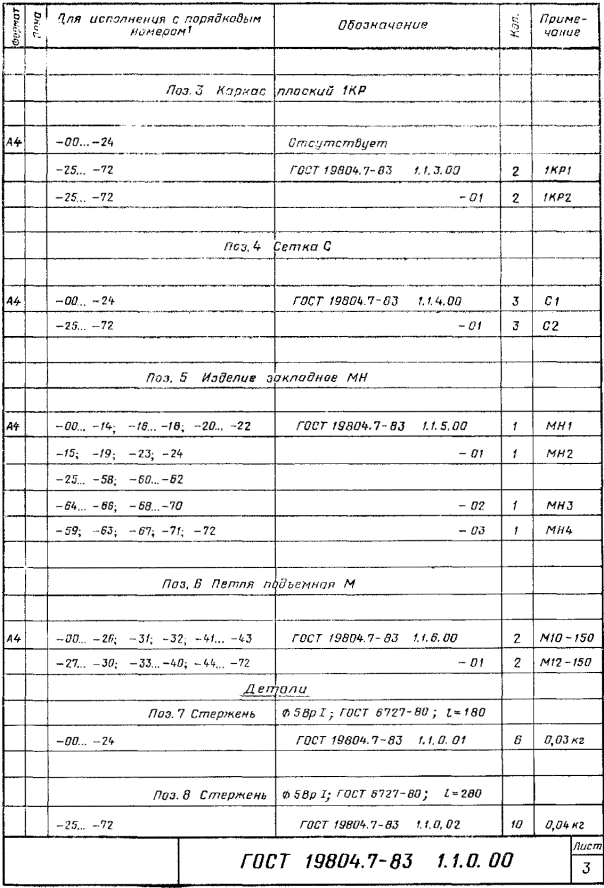 Формат Зона Для исполнения с порядковым номером¹ Обозначение Кол. Приме-
чание
Поз. 3 Каркас плоский 1КР
А4 -00... -24 Отсутствует
-25... -72 ГОСТ 19804.7-83 1.1.3.00 2 1КР1
-25... -72 -01 2 1КР2
Поз. 4 Сетка С
А4 -00... -24 ГОСТ 19804.7-83 1.1.4.00 3 С1
-25... -72 -01 3 С2
Поз. 5 Изделие закладное МН
А4 -00... -14; -16... -18; -20... -22 ГОСТ 19804.7-83 1.1.5.00 1 МН1
-15; -19; -23; -24 -01 1 МН2
-25... -58; -60... -62
-64... -66; -68... -70 -02 1 МН3
-59; -63; -67; -71; -72 -03 1 МН4
Поз. 6 Петля подъемная М
А4 -00... -26; -31; -32; -41... -43 ГОСТ 19804.7-83 1.1.6.00 2 М10-150
-27... -30; -33... -40; -44... -72 -01 2 М12-150
Детали
Поз. 7 Стержень ϕ 5Вр I; ГОСТ 6727-80; l=180
-00... -24 ГОСТ 19804.7-83 1.1.0.01 6 0,03 кг
Поз. 8 Стержень ϕ 5Вр I; ГОСТ 6727-80; l=280
-25... -72 ГОСТ 19804.7-83 1.1.0.02 10 0,04 кг
ГОСТ 19804.7-83 1.1.0.00 Лист
3